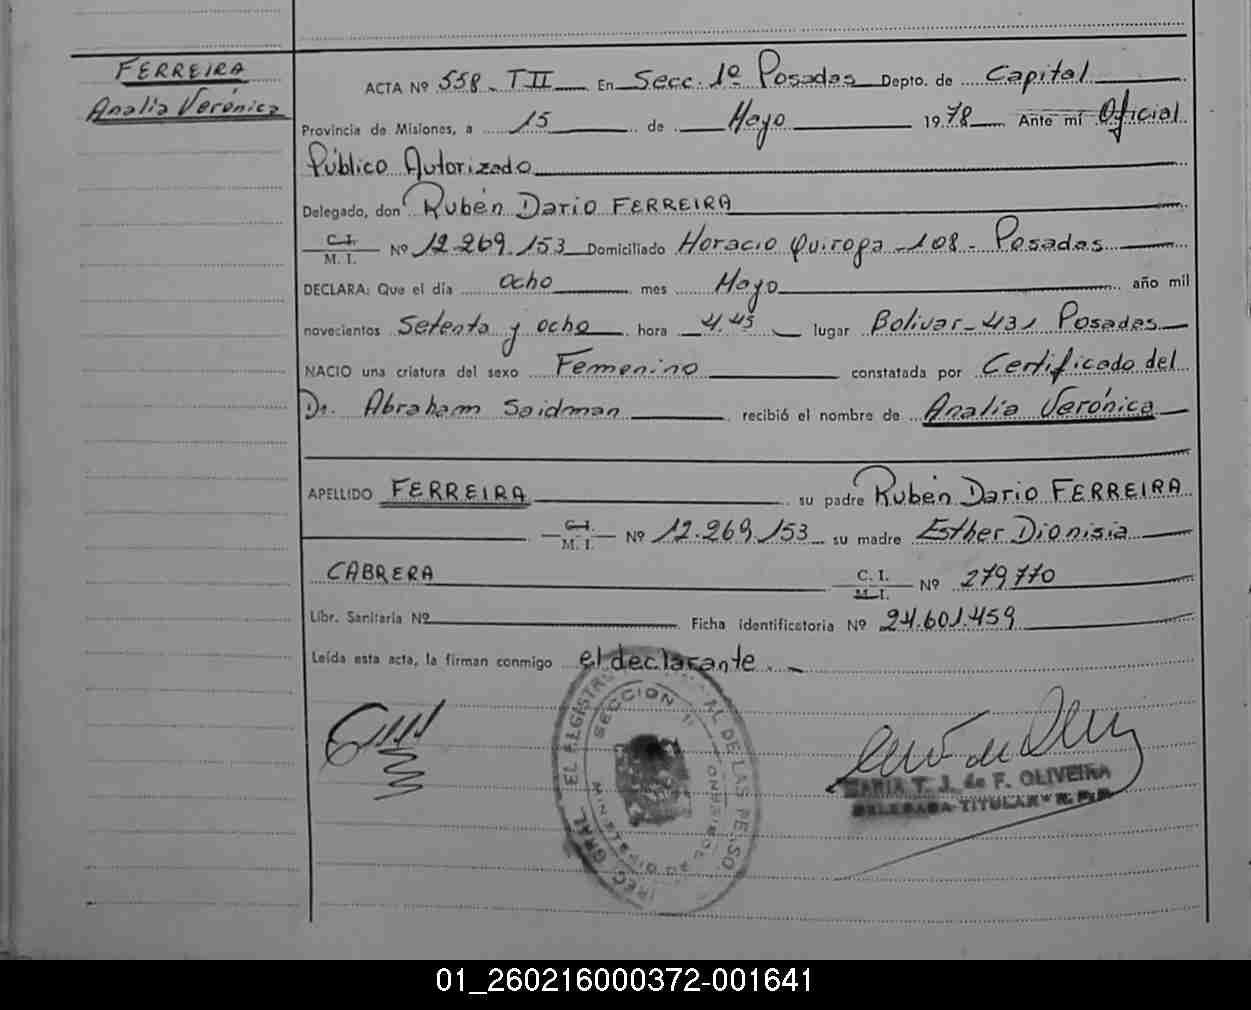 FERREIRA
Analía Verónica
ACTA Nº 558. T II En Secc. 1º Posadas Depto. de Capital
Provincia de Misiones, a 15 de Mayo 1978 Ante mí Oficial
Público Autorizado
Delegado, don Rubén Dario FERREIRA
C. I.
M. I. Nº 12.269.153 Domiciliado Horacio Quiroga -108- Posadas
DECLARA: Que el día ocho mes Mayo año mil
novecientos Setenta y ocho hora 4.45 lugar Bolivar-431 Posadas
NACIO una criatura del sexo Femenino constatada por Certificado del
Dr. Abraham Saidman recibió el nombre de Analía Verónica
APELLIDO FERREIRA su padre Rubén Dario FERREIRA
C. I.
M. I. Nº 12.269.153 su madre Esther Dionisia
CABRERA C. I.
M. I. Nº 279.770
Libr. Sanitaria Nº Ficha identificatoria Nº 24.601.459
Leída esta acta, la firman conmigo el declarante.
SECCION 1ª
MARIA T. J. de F. OLIVEIRA
DELEGADA TITULAR R. P. P.
01_260216000372-001641